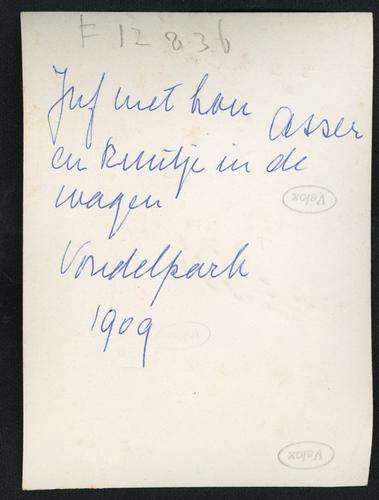 F 12836
Juf met Lou Asser
en Truitje in de
wagen
Velox
Vondelpark
1909
Velox